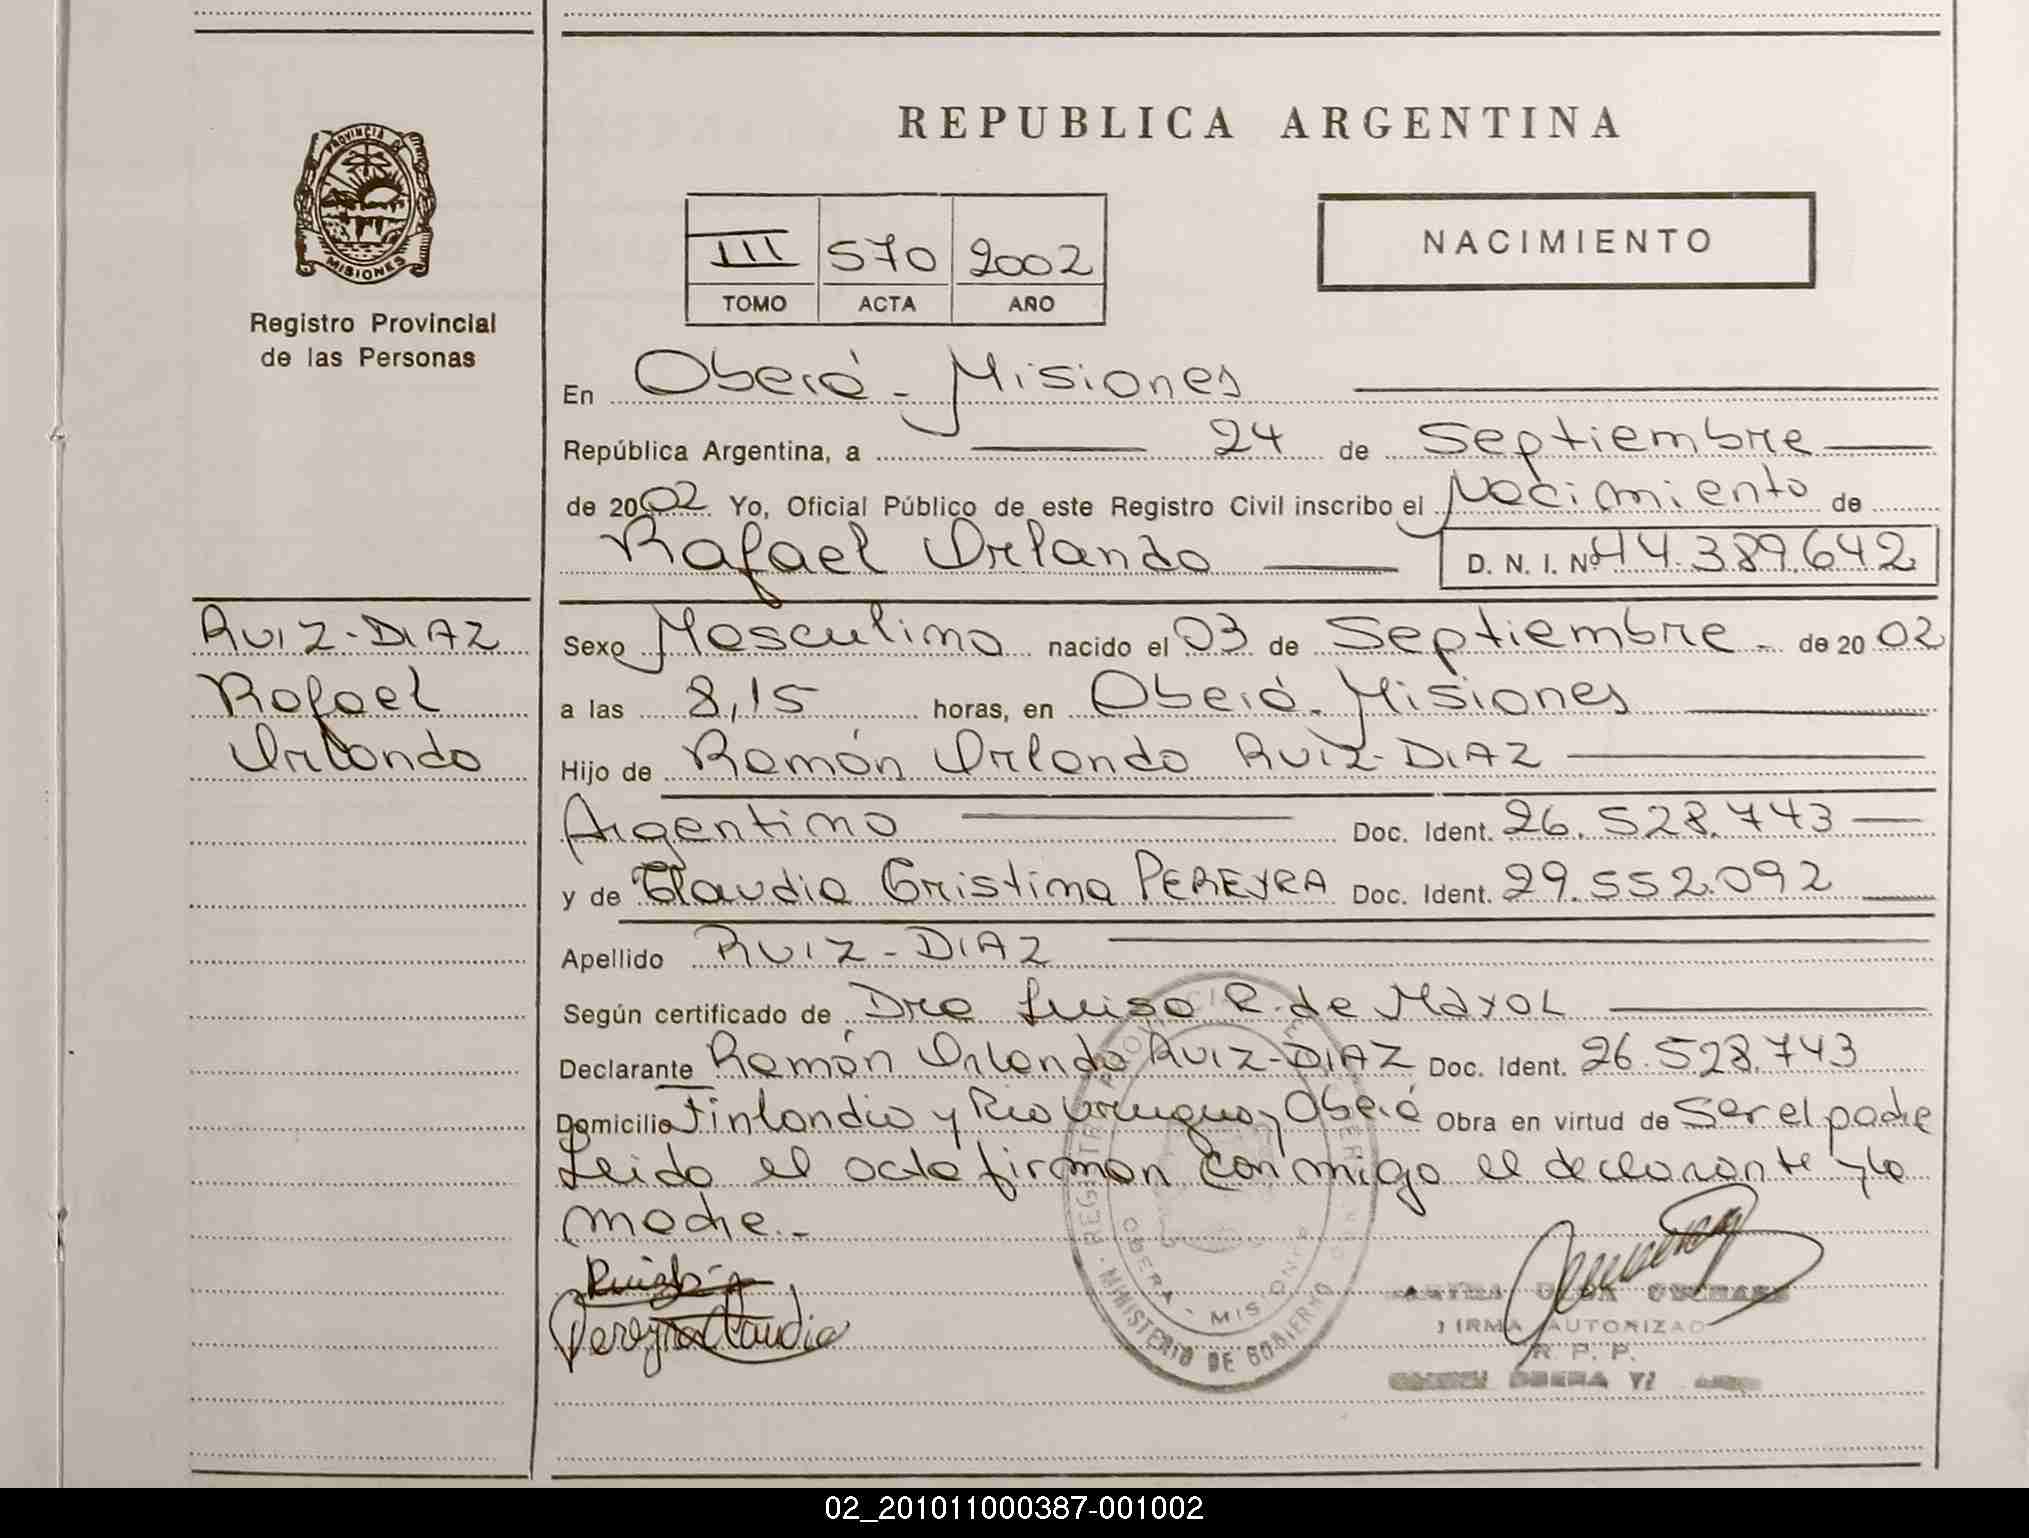 REPUBLICA ARGENTINA
PROVINCIA DE
MISIONES
Registro Provincial
de las Personas
III 570 2002
TOMO ACTA AÑO
NACIMIENTO
En Oberá - Misiones
República Argentina, a 24 de Septiembre
de 2002 Yo, Oficial Público de este Registro Civil inscribo el Nacimiento de
Rafael Orlando D. N. I. Nº 44.389.642
RUIZ-DIAZ
Rafael
Orlando
Sexo Masculino nacido el 03 de Septiembre - de 2002
a las 8,15 horas, en Oberá - Misiones
Hijo de Ramón Orlando RUIZ-DIAZ
Argentino Doc. Ident. 26.528.743
y de Claudia Cristina PEREYRA Doc. Ident. 29.552.092
Apellido RUIZ-DIAZ
Según certificado de Dra Luisa R. de MAYOL
Declarante Ramón Orlando RUIZ-DIAZ Doc. Ident. 26.528.743
Domicilio Finlandia y Rio Uruguay, Oberá Obra en virtud de Ser el padre
Leida el acta firman conmigo el declarante y la
madre.-
Ruiz Diaz
Pereyra Claudia
OBERA - MISIONES
MINISTERIO DE GOBIERNO
FIRMA AUTORIZAD
R. P. P.
02_201011000387-001002